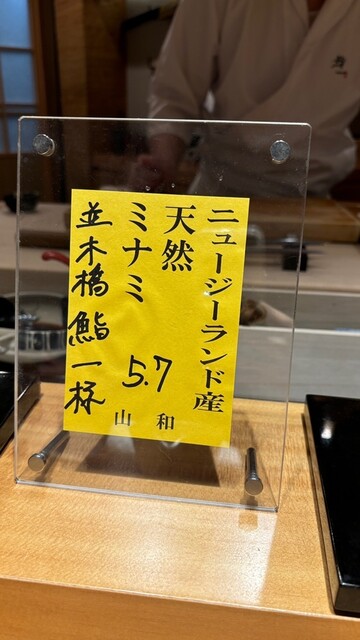 ニュージーランド産
天然
ミナミ
5.7
並木橋 鮨一杯
山和